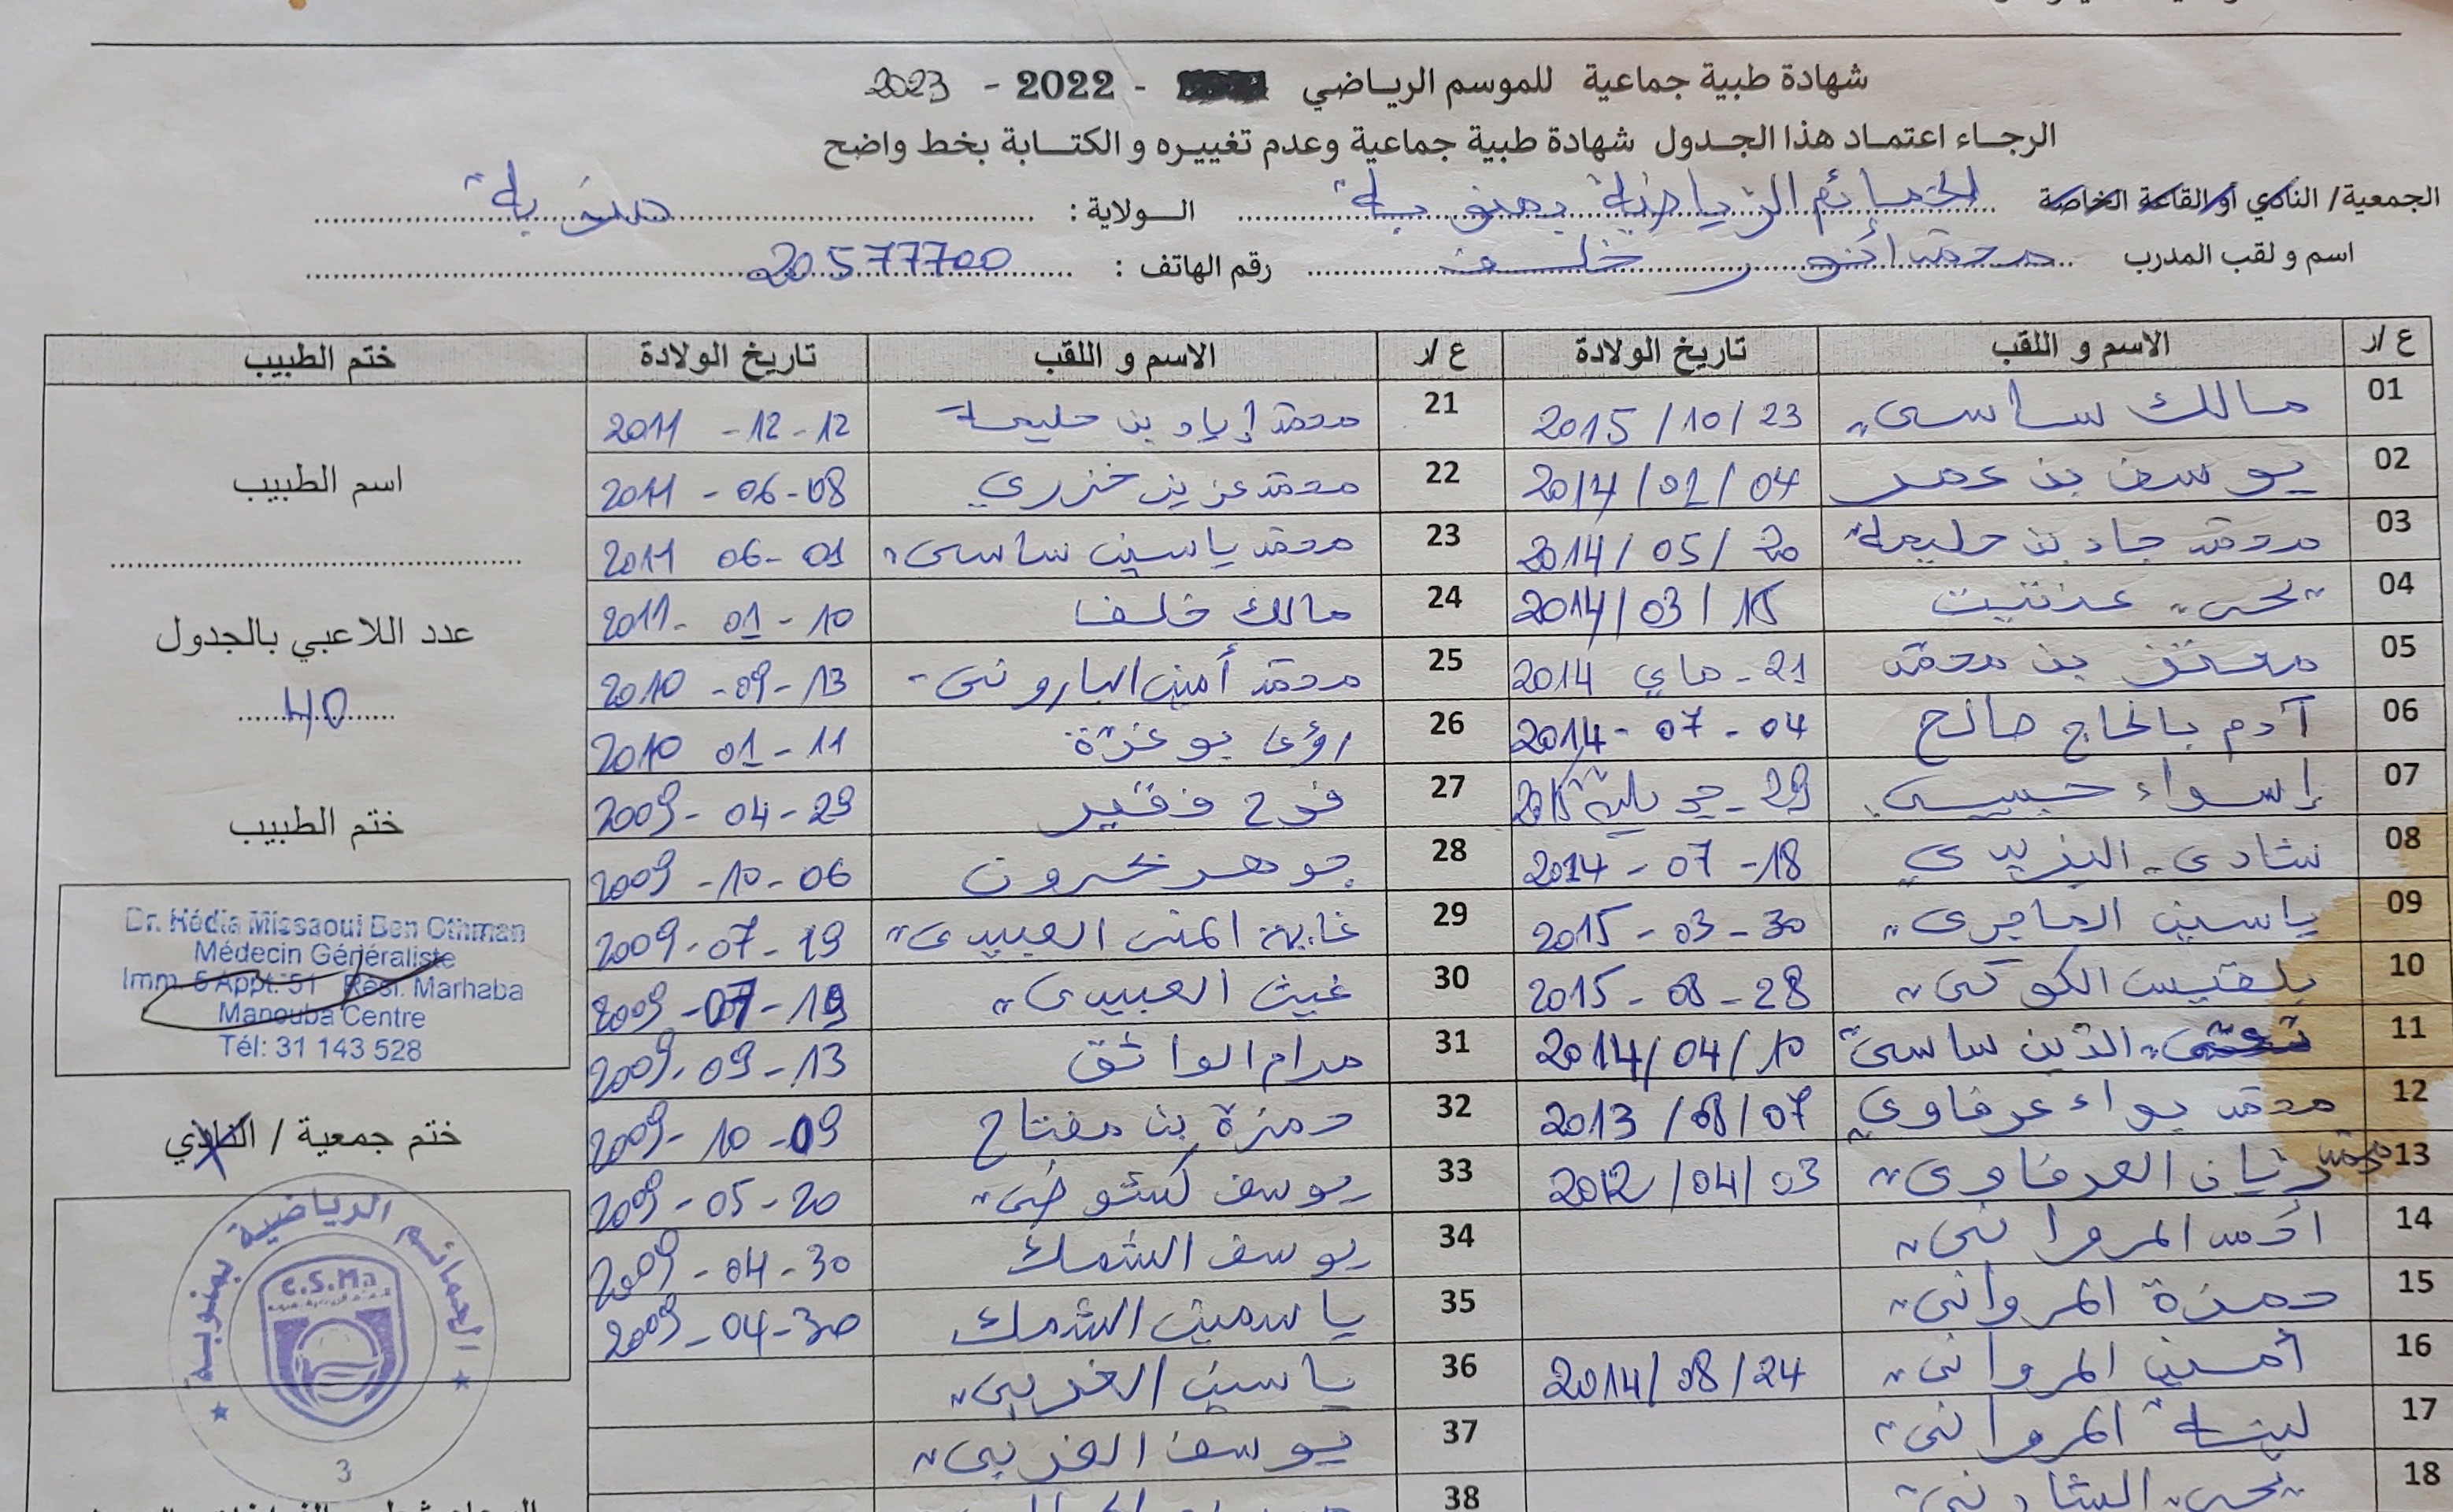 شهادة طبية جماعية للموسم الرياضي - 2022 - 2023
الرجاء اعتماد هذا الجدول شهادة طبية جماعية وعدم تغييره و الكتابة بخط واضح
الجمعية/ النادي أو القاعة الخاصة الحمائم الرياضية بمنوبة الولاية : منوبة
اسم و لقب المدرب محمد أنور خلف رقم الهاتف : 20577700
ع/ر الاسم و اللقب تاريخ الولادة ع/ر الاسم و اللقب تاريخ الولادة ختم الطبيب
01 مالك ساسي 2015/10/23 21 محمد إياد بن حليمة 2011 -12-12
02 يوسف بن عمر 2014/01/04 22 محمد عزيز خزري 2011 - 06-08
03 محمد جاد بن حليمة 2014/05/20 23 محمد ياسين ساسي 2011 06-01
04 يحي 2014/03/15 24 مالك خلف 2011- 01-10
05 معتز بن محمد 21- ماي 2014 25 محمد أمين الباروني 2010 -09-13
06 آدم بالحاج صالح 2014- 07 - 04 26 رؤى بوعزة 2010 01-11
07 إسراء حبيبي 29- جويلية 27 فرح فقير 2009- 04-29
08 شادي اليزيدي 2014 - 07 -18 28 جوهر نحرون 2009 -10-06
09 ياسين الماجري 2015 - 03 -30 29 غاية المنى العبيدي 2009-07-19
10 بلقيس الكوكي 2015 - 08 -28 30 غيث العبيدي 2009 -07-19
11 الدين ساسي 2014/04/10 31 مرام الواثق 2009-09-13
12 محمد براء عرفاوي 2013 /08/07 32 حمزة بن مفتاح 2009-10-09
13 محمد ريان العرفاوي 2012 /04/03 33 يوسف 2009-05-20
14 أحمد المرواني 34 يوسف الشمك 2009-04-30
15 حمزة المرواني 35 ياسمين الشمك 2009-04-30
16 أمين المرواني 2014/08/24 36 ياسين الغربي
17 لينة المرواني 37 يوسف الغربي
18 يحي 38
اسم الطبيب
عدد اللاعبي بالجدول
40
ختم الطبيب
Dr. Hédia Missaoui Ben Othman
Médecin Généraliste
Imm. 5 Appt. 51 Rési. Marhaba
Manouba Centre
Tél: 31 143 528
ختم جمعية / النادي
الحمائم الرياضية بمنوبة
C.S.Ma
3